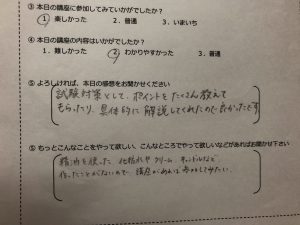 ③ 本日の講座に参加してみていかがでしたか？
1. 楽しかった 2. 普通 3. いまいち
④ 本日の講座の内容はいかがでしたか？
1. 難しかった 2. わかりやすかった 3. 普通
⑤ よろしければ、本日の感想をお聞かせください
試験対策として、ポイントをたくさん教えて
もらったり、具体的に解説してくれたので良かったです
⑥ もっとこんなことをやって欲しい、こんなところでやって欲しいなどがあればお聞かせ下さい
精油を使った、化粧水やクリーム、キャンドルなど
作ったことがないので、講座があれば参加してみたい。